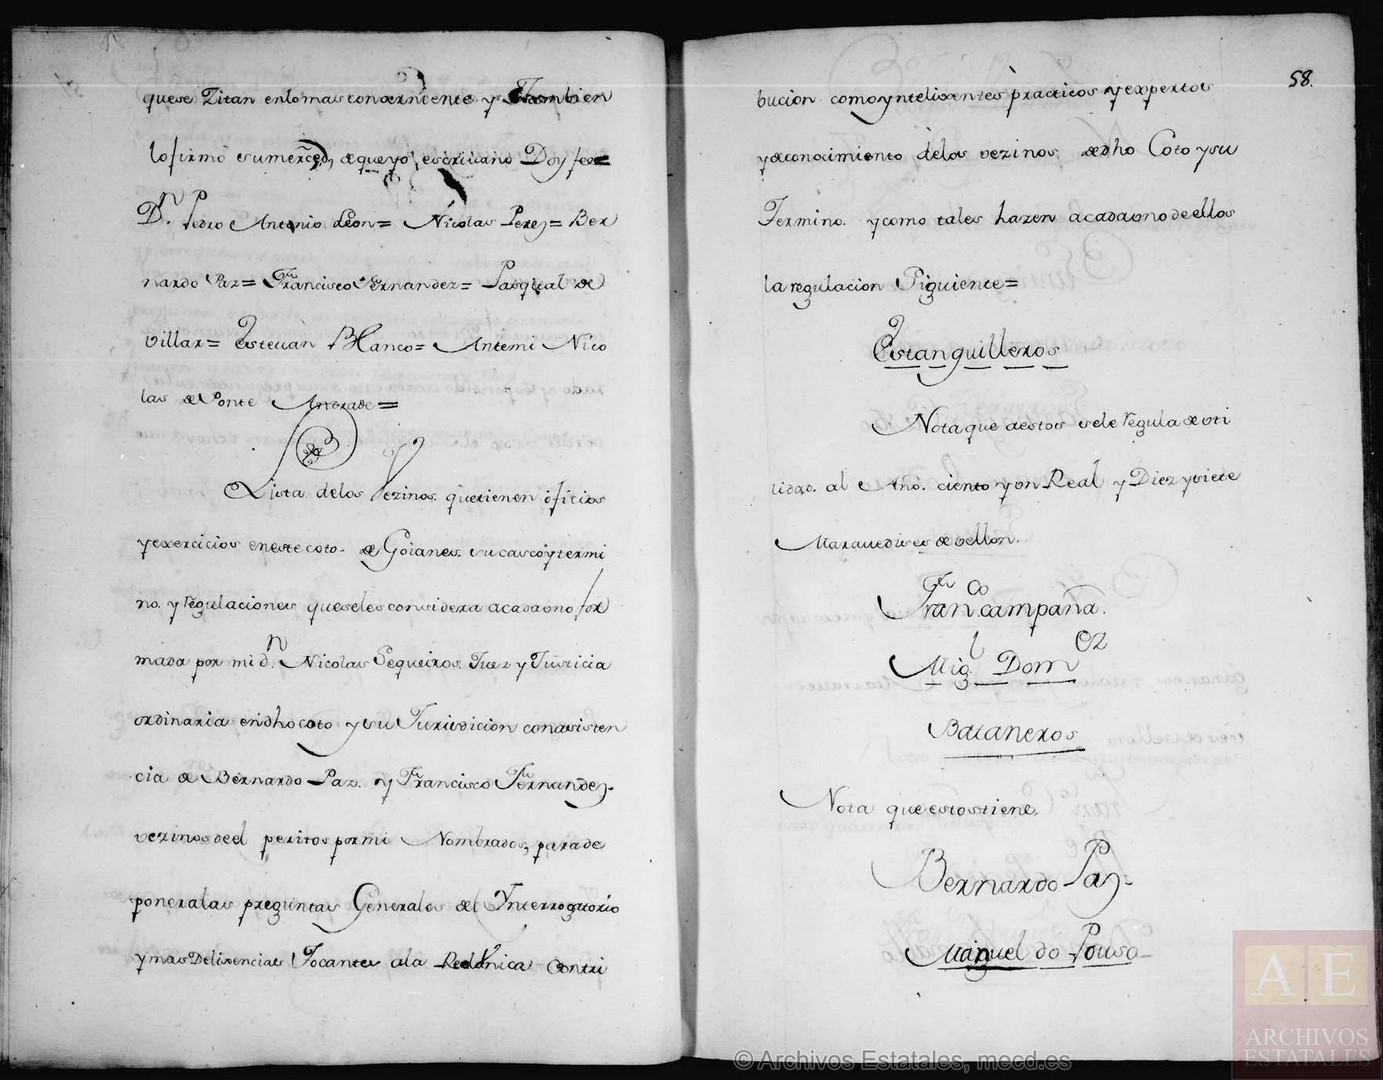 que se Zitan enlo mas conzerniente y Tambien
lo firmó su merced, de que yo escrivano Doy fee=
Dn. Pedro Antonio Leon= Nicolas Perez= Ber
nardo Paz= Francisco Fernandez= Pasqual de
villar= Estevan Blanco= Antemi Nico
las de Ponte Andrade=
Lista delos vezinos que tienen oficios
y exercicios en este coto de Goianes su casco y termi
no. y regulaciones que seles considera a cada uno for
mada por mi dn. Nicolas Sequeiros Juez y Justicia
ordinaria en dho coto y su Jurisdicion con asisten
cia de Bernardo Paz y Francisco Fernandez
vezinos deel peritos por mi Nombrados, para de
poner alas preguntas Generales del Ynterrogatorio
y mas Delixencias Tocantes ala Real Vnica Contri
58.
bucion como yntelixentes practicos y expertos
y de conocimiento delos vezinos de dho Coto y su
Termino. y como tales hazen a cada uno de ellos
la regulacion Siguiente=
Estanquilleros
Nota que aestos sele regula de uti
lidad al Año. ciento y un Real y Diez y siete
Maravedises de vellon.
Franco campaña.
Migl. Domez
Bataneros
Nota que estos tiene
Bernardo Paz
Manuel do Pouso
© Archivos Estatales, mecd.es
AE
ARCHIVOS
ESTATALES